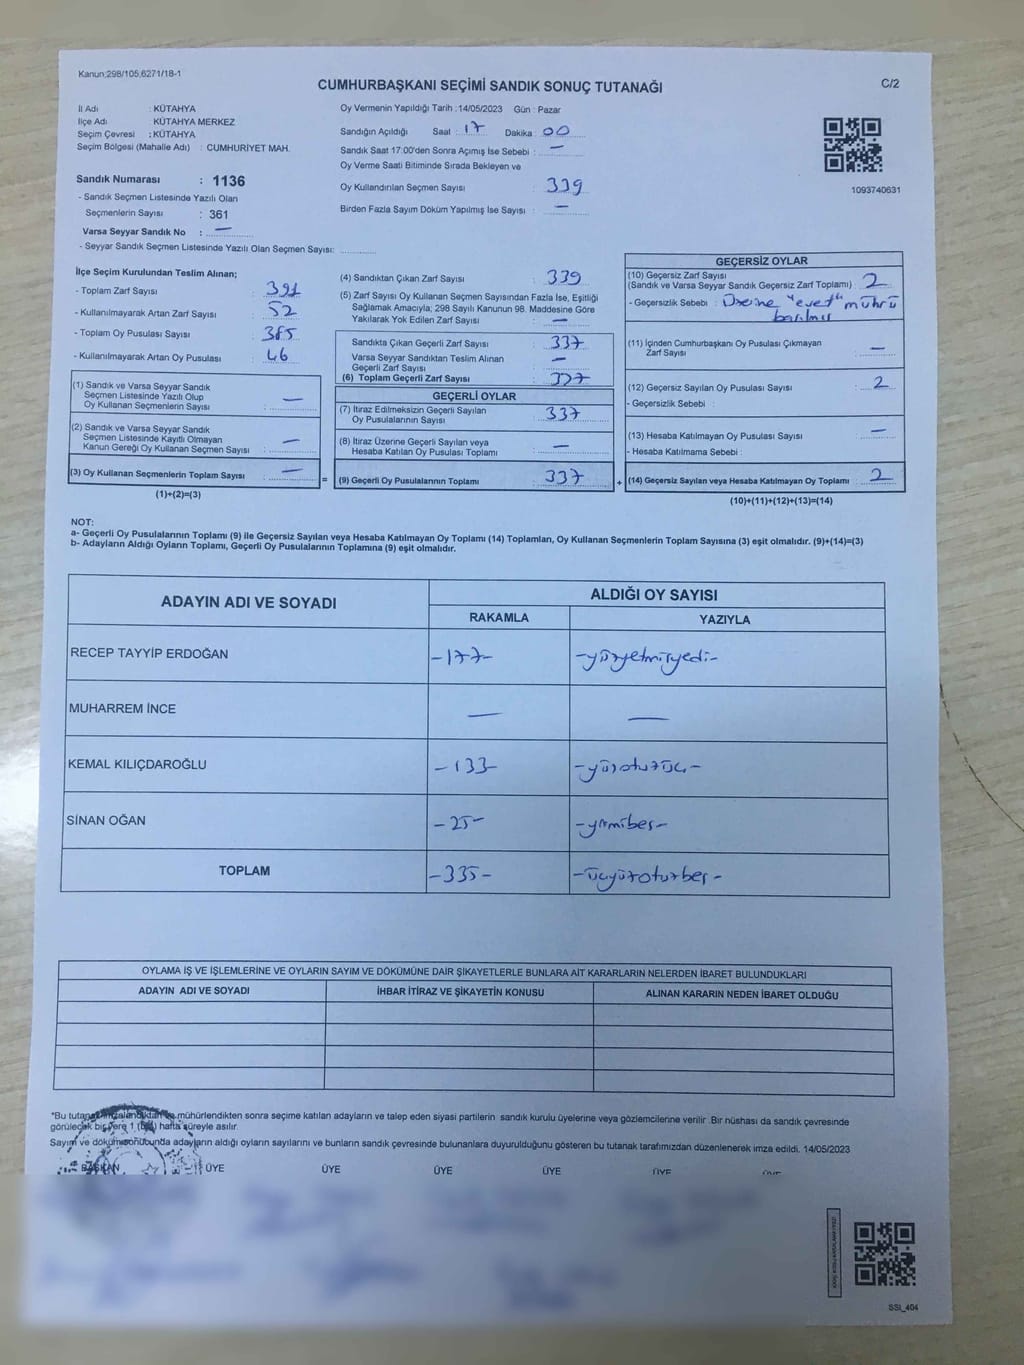 Kanun;298/105,6271/18-1
CUMHURBAŞKANI SEÇİMİ SANDIK SONUÇ TUTANAĞI
C/2
İl Adı : KÜTAHYA
İlçe Adı : KÜTAHYA MERKEZ
Seçim Çevresi : KÜTAHYA
Seçim Bölgesi (Mahalle Adı) : CUMHURİYET MAH.
Sandık Numarası : 1136
- Sandık Seçmen Listesinde Yazılı Olan
Seçmenlerin Sayısı : 361
Varsa Seyyar Sandık No : —
- Seyyar Sandık Seçmen Listesinde Yazılı Olan Seçmen Sayısı:
Oy Vermenin Yapıldığı Tarih : 14/05/2023 Gün : Pazar
Sandığın Açıldığı Saat : 17 Dakika : 00
Sandık Saat 17:00'den Sonra Açımış İse Sebebi : —
Oy Verme Saati Bitiminde Sırada Bekleyen ve
Oy Kullandırılan Seçmen Sayısı : 339
Birden Fazla Sayım Döküm Yapılmış İse Sayısı : —
1093740631
İlçe Seçim Kurulundan Teslim Alınan;
- Toplam Zarf Sayısı : 391
- Kullanılmayarak Artan Zarf Sayısı : 52
- Toplam Oy Pusulası Sayısı : 385
- Kullanılmayarak Artan Oy Pusulası : 46
(1) Sandık ve Varsa Seyyar Sandık
Seçmen Listesinde Yazılı Olup
Oy Kullanan Seçmenlerin Sayısı : —
(2) Sandık ve Varsa Seyyar Sandık
Seçmen Listesinde Kayıtlı Olmayan
Kanun Gereği Oy Kullanan Seçmen Sayısı : —
(3) Oy Kullanan Seçmenlerin Toplam Sayısı : —
(1)+(2)=(3)
(4) Sandıktan Çıkan Zarf Sayısı : 339
(5) Zarf Sayısı Oy Kullanan Seçmen Sayısından Fazla İse, Eşitliği
Sağlamak Amacıyla; 298 Sayılı Kanunun 98. Maddesine Göre
Yakılarak Yok Edilen Zarf Sayısı : —
Sandıkta Çıkan Geçerli Zarf Sayısı : 337
Varsa Seyyar Sandıktan Teslim Alınan
Geçerli Zarf Sayısı : —
(6) Toplam Geçerli Zarf Sayısı : 337
GEÇERLİ OYLAR
(7) İtiraz Edilmeksizin Geçerli Sayılan
Oy Pusulalarının Sayısı : 337
(8) İtiraz Üzerine Geçerli Sayılan veya
Hesaba Katılan Oy Pusulaları Toplamı : —
= (9) Geçerli Oy Pusulalarının Toplamı : 337
GEÇERSİZ OYLAR
(10) Geçersiz Zarf Sayısı
(Sandık ve Varsa Seyyar Sandık Geçersiz Zarf Toplamı) : 2
- Geçersizlik Sebebi : Üzerine "evet" mührü
basılmış
(11) İçinden Cumhurbaşkanı Oy Pusulası Çıkmayan
Zarf Sayısı : —
(12) Geçersiz Sayılan Oy Pusulası Sayısı : 2
- Geçersizlik Sebebi :
(13) Hesaba Katılmayan Oy Pusulası Sayısı : —
- Hesaba Katılmama Sebebi :
+ (14) Geçersiz Sayılan veya Hesaba Katılmayan Oy Toplamı : 2
(10)+(11)+(12)+(13)=(14)
NOT:
a- Geçerli Oy Pusulalarının Toplamı (9) ile Geçersiz Sayılan veya Hesaba Katılmayan Oy Toplamı (14) Toplamları, Oy Kullanan Seçmenlerin Toplam Sayısına (3) eşit olmalıdır. (9)+(14)=(3)
b- Adayların Aldığı Oyların Toplamı, Geçerli Oy Pusulalarının Toplamına (9) eşit olmalıdır.
ADAYIN ADI VE SOYADI
ALDIĞI OY SAYISI
RAKAMLA YAZIYLA
RECEP TAYYİP ERDOĞAN -177- -yüzyetmişyedi-
MUHARREM İNCE — —
KEMAL KILIÇDAROĞLU -133- -yüzotuzüç-
SİNAN OĞAN -25- -yirmibeş-
TOPLAM -335- -üçyüzotuzbeş-
OYLAMA İŞ VE İŞLEMLERİNE VE OYLARIN SAYIM VE DÖKÜMÜNE DAİR ŞİKAYETLERLE BUNLARA AİT KARARLARIN NELERDEN İBARET BULUNDUKLARI
ADAYIN ADI VE SOYADI İHBAR İTİRAZ VE ŞİKAYETİN KONUSU ALINAN KARARIN NEDEN İBARET OLDUĞU
*Bu tutanak imzalandıktan ve mühürlendikten sonra seçime katılan adayların ve talep eden siyasi partilerin sandık kurulu üyelerine veya gözlemcilerine verilir. Bir nüshası da sandık çevresinde
görülecek bir yere 1 (bir) hafta süreyle asılır.
Sayım ve dökümsonucunda adayların aldığı oyların sayılarını ve bunların sandık çevresinde bulunanlara duyurulduğunu gösteren bu tutanak tarafımızdan düzenlenerek imza edildi. 14/05/2023
BAŞKAN ÜYE ÜYE ÜYE ÜYE ÜYE ÜYE
SSİ_404